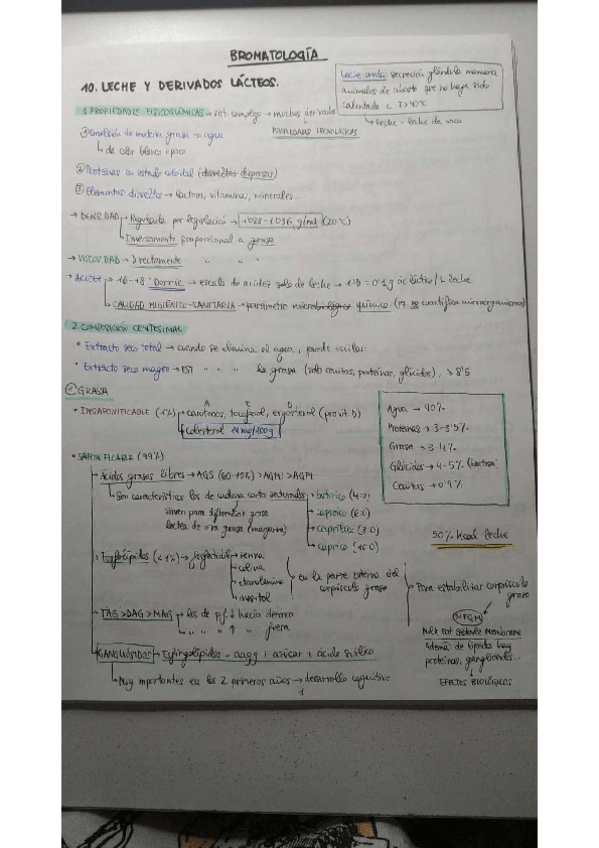 BROMATOLOGÍA
10. LECHE Y DERIVADOS LÁCTEOS.
Leche cruda: secreción glándula mamaria
animales de abasto que no haya sido
calentada a T>40ºC
↳ leche = leche de vaca
1. PROPIEDADES FISICOQUÍMICAS → complejo → muchos derivados
PROPIEDADES TECNOLÓGICAS
① Emulsión de materia grasa en agua
↳ de color blanco opaco
② Proteínas en estado coloidal (disueltas dispersas)
③ Elementos disueltos → lactosa, vitaminas, minerales...
→ DENSIDAD → Regulada por legislación → 1'028-1'036 g/ml (20ºC)
→ Inversamente proporcional a grasa
→ VISCOSIDAD → Directamente " " "
→ ACIDEZ → 16-18 º Dornic → escala de acidez solo de leche → 1ºD = 0'1 g ác láctico / L leche
→ CALIDAD HIGIÉNICO-SANITARIA → parámetro químico (no cuantifica microorganismos)
2. COMPOSICIÓN CENTESIMAL
• Extracto seco total → cuando se elimina el agua, puede oscilar
• Extracto seco magro → EST " " la grasa (solo cenizas, proteínas, glúcidos), >8'5
① GRASA
• INSAPONIFICABLE (1%) → carotenos, tocoferol, ergosterol (provit D)
A E D
colesterol 14 mg/100g
Agua → 90%
Proteínas → 3-3'5%
Grasa → 3-4%
Glúcidos → 4-5% (lactosa)
Cenizas → 0'9%
• SAPONIFICABLE (99%)
→ Ácidos grasos libres → AGS (60-75%) > AGMI > AGPI
↳ Son característicos los de cadena corta saturados
sirven para diferenciar grasa
láctea de otra grasa (margarina)
→ butírico (4:0)
→ caproico (6:0)
→ caprílico (8:0)
→ cáprico (10:0)
50% kcal leche
→ Fosfolípidos (<1%) → fosfatidil → serina
→ colina
→ etanolamina
→ inositol
en la parte externa del
corpúsculo graso
→ Para estabilizar corpúsculo
graso
MFGM
Milk Fat Globule Membrane
Además de lípidos hay
proteínas, gangliósidos...
↳ EFECTOS BIOLÓGICOS
→ TAG > DAG > MAG → los de p.f. ↓ hacia dentro
" " " ↑ " fuera
→ GANGLIÓSIDOS → Esfingolípidos - aagg + azúcar + ácido siálico
↳ Muy importantes en los 2 primeros años → desarrollo cognitivo
1